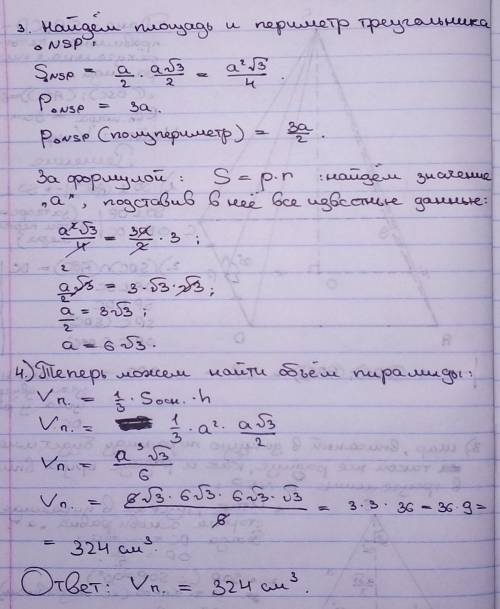 3. Найдём площадь и периметр треугольника
△NSP:
S△NSP = a/2 · a√3/2 = a²√3/4.
P△NSP = 3a.
p△NSP (полупериметр) = 3a/2.
За формулой: S = p·r :найдём значение
„a", подставив в неё все известные данные:
a²√3/4 = 3a/2 · 3;
2
a√3/2 = 3·√3·√3;
a/2 = 3√3;
a = 6√3.
4.) Теперь можем найти объём пирамиды:
Vп. = 1/3 · Sосн. · h
Vп. = 1/3 · a² · a√3/2
Vп. = a³√3/6
Vп. = 6√3 · 6√3 · 6√3 · √3/6 = 3·3·36 = 36·9 =
= 324 см³.
Ответ: Vп. = 324 см³.